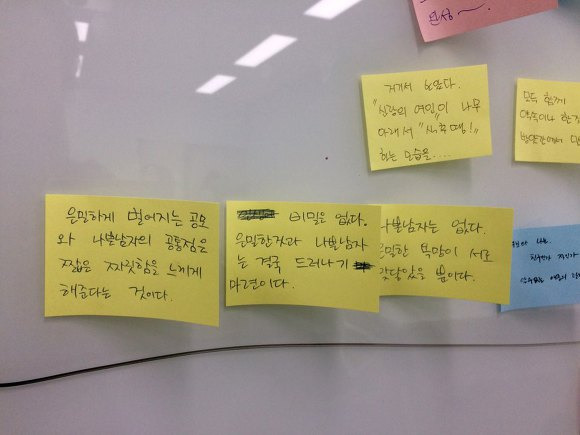 반성~.
거기서 보았다.
"신랑의 여인이 나무
아래서 "
하는 모습을....
모두 함께
은밀하게 벌어지는 공모
와 나쁜남자의 공통점은
짧은 짜릿함을 느끼게
해준다는 것이다.
비밀은 없다.
은밀한것과 나쁜남자
는 결국 드러나기
마련이다.
나쁜남자는 없다.
은밀한 욕망이 서로
맞닿았을 뿐이다.